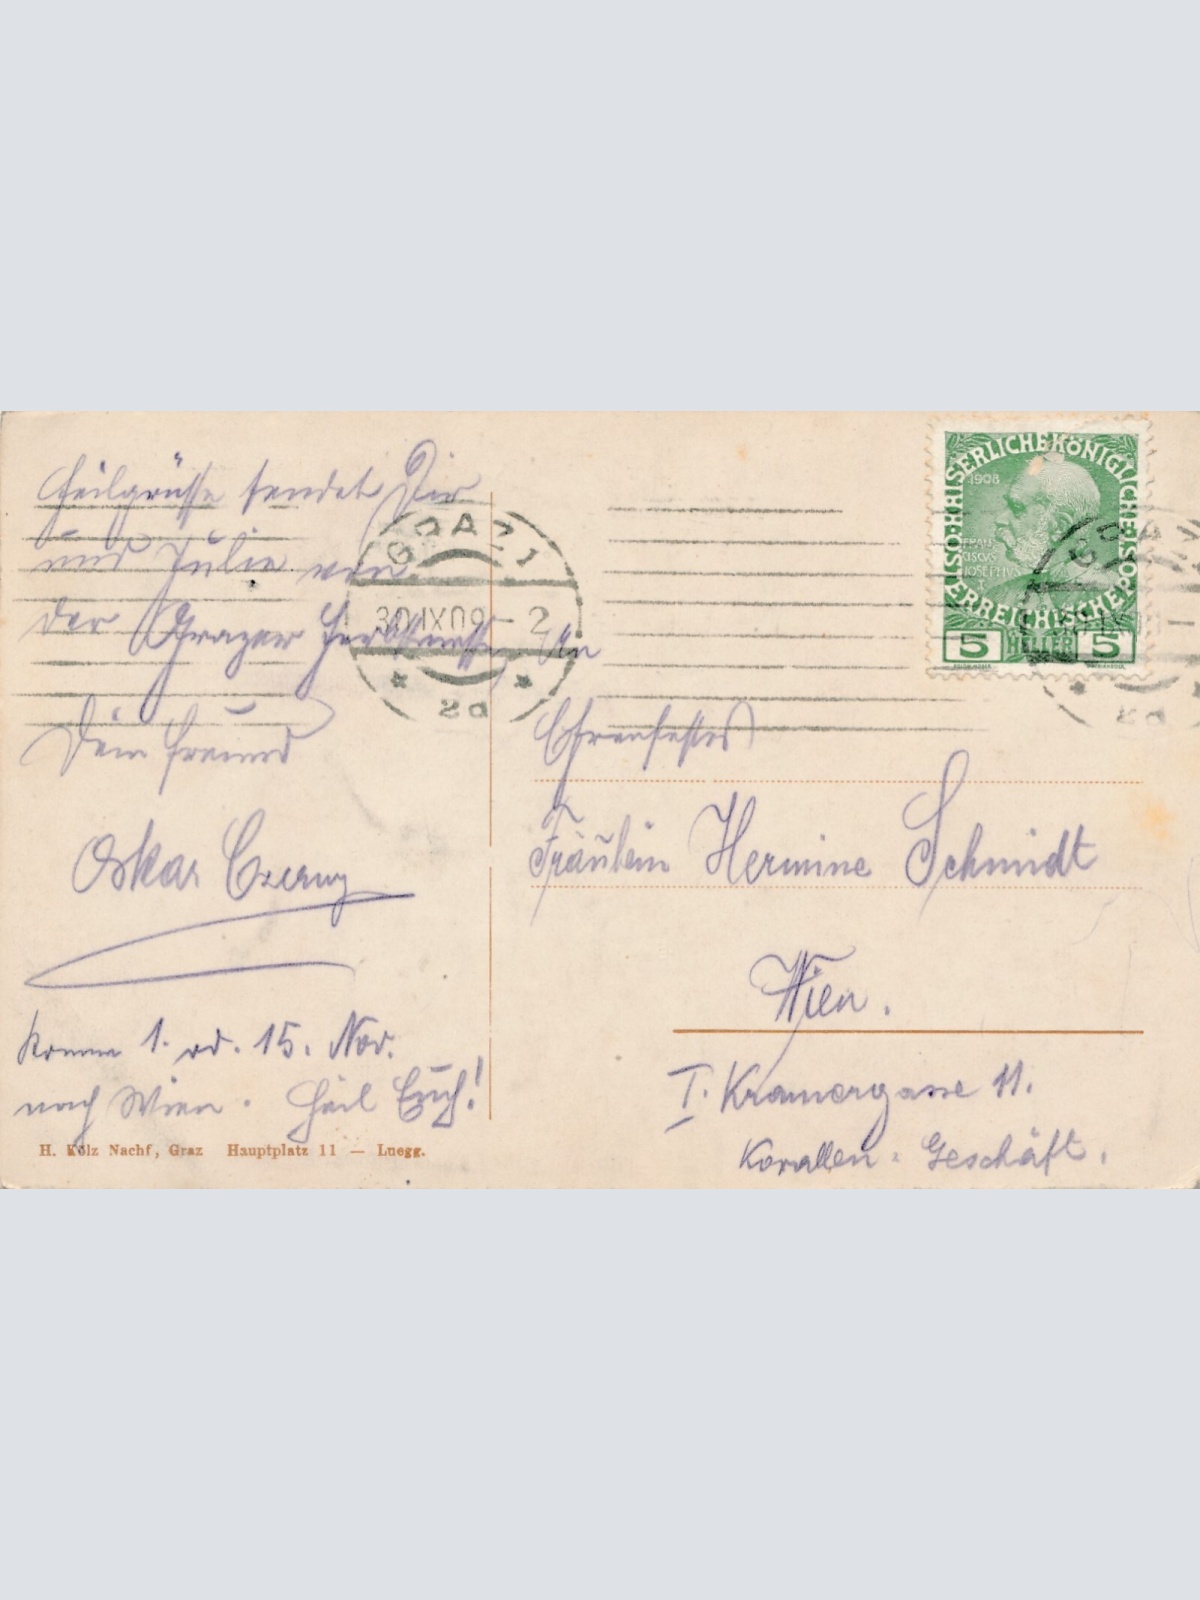 Heilgrüsse sendet Dir
und Julie von
der Grazer Herbstmesse
Dein Freund
Oskar Czerny
Komme 1. od. 15. Nov.
nach Wien. Heil Euch!
H. Kölz Nachf, Graz Hauptplatz 11 — Luegg.
GRAZ 1
30. IX 09 - 2
* 2a *
KAISERLICHE KÖNIGLICHE ÖSTERREICHISCHE POST
1908
FRAN
CISCVS
JOSEPHVS
5 HELLER 5
An
Ehrenfestes
Fräulein Hermine Schmidt
Wien.
I. Kramergasse 11.
Korallen-Geschäft.